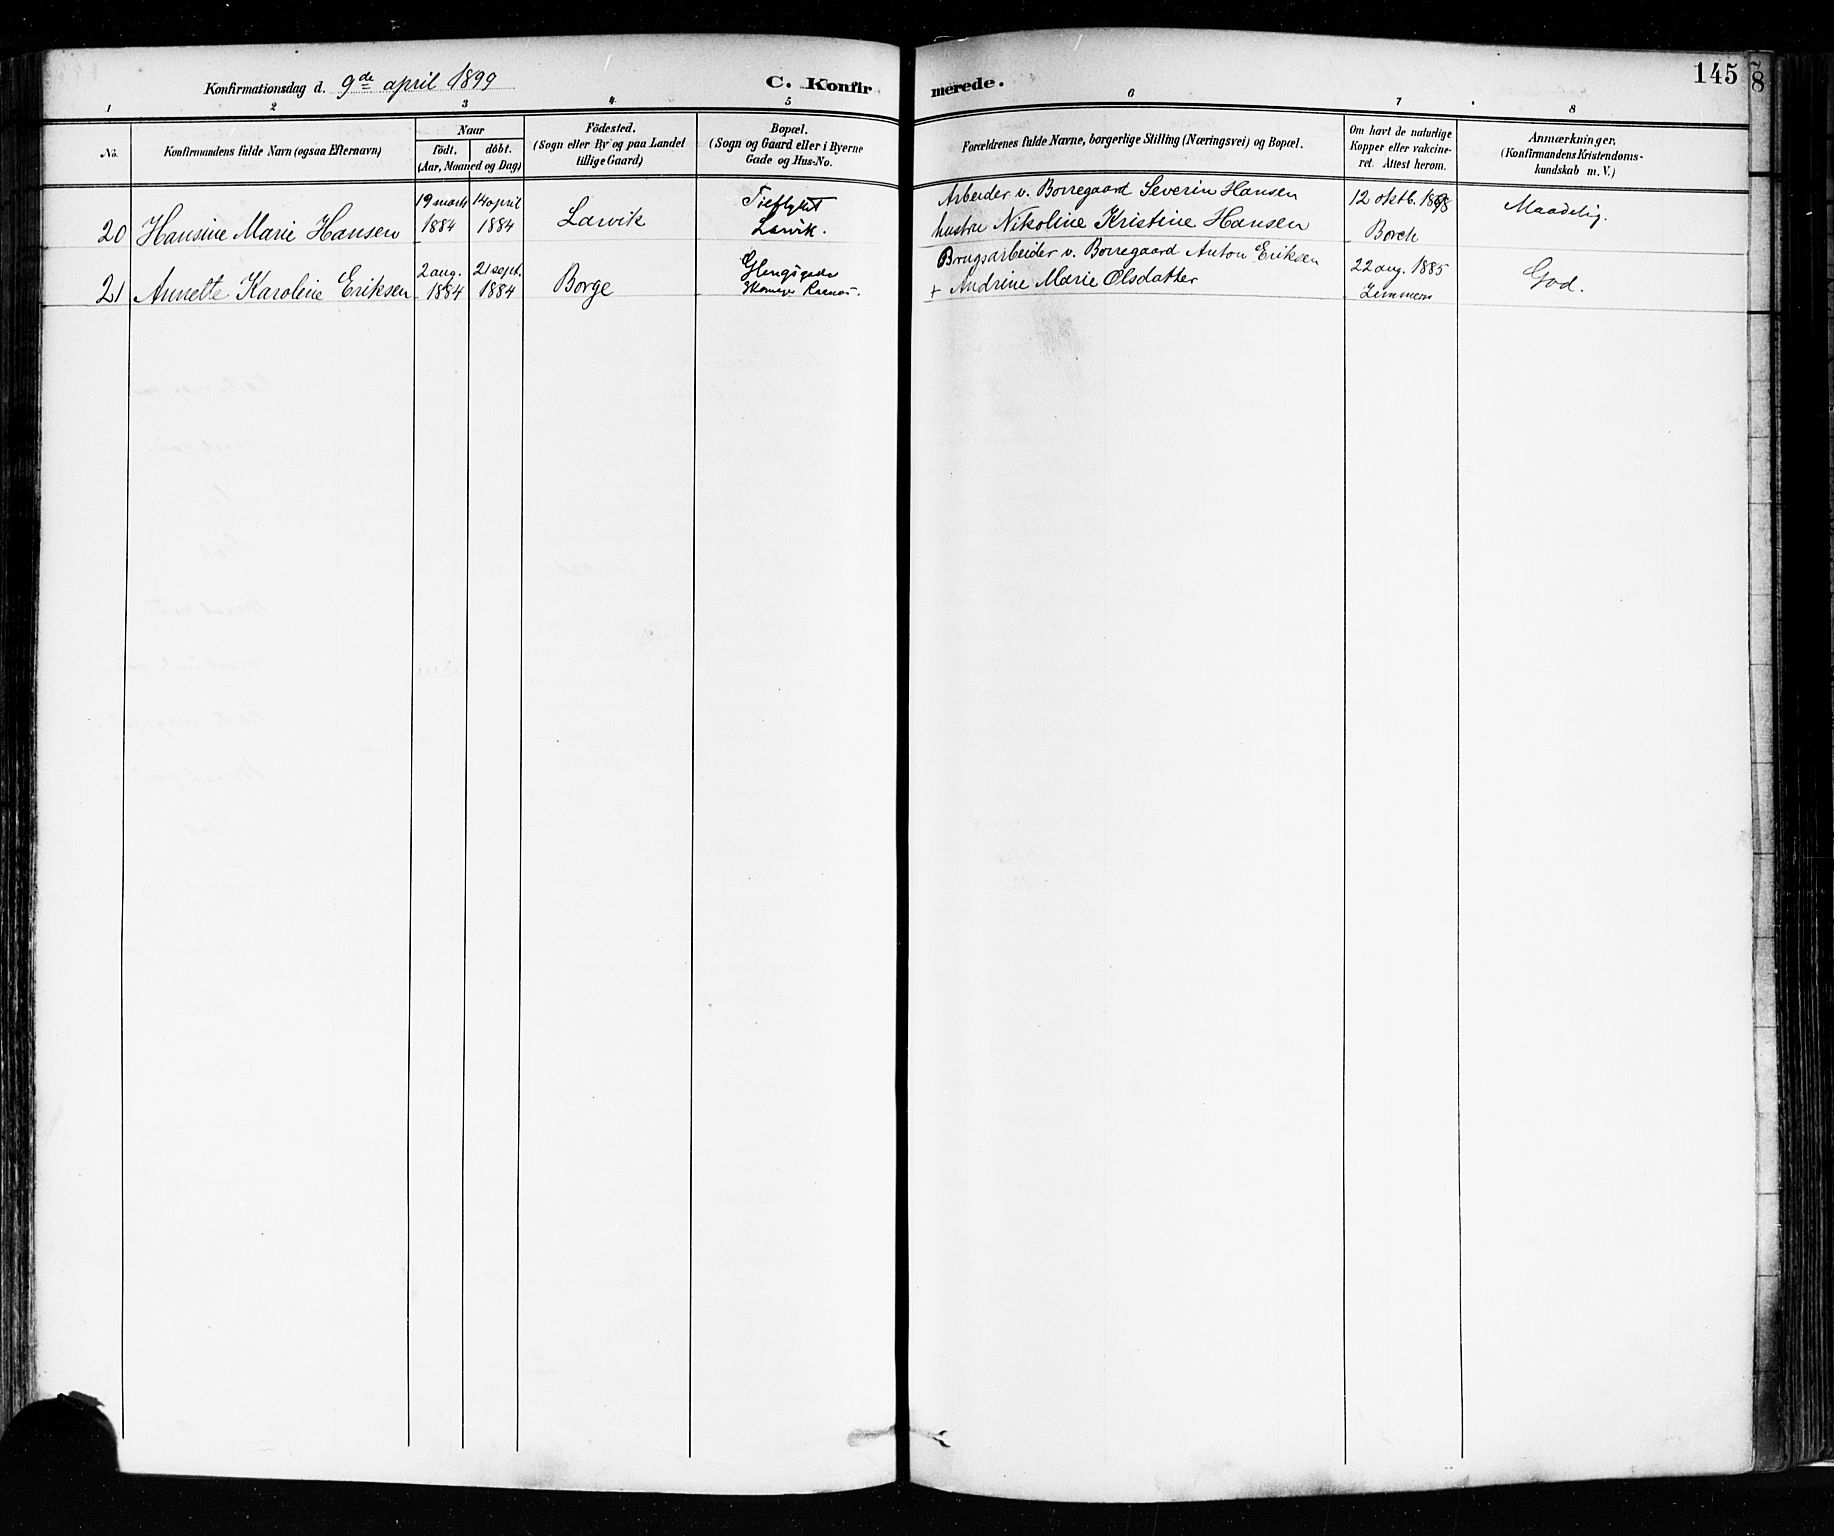 Konfirmationsdag d. 9de april 1899
C. Konfirmerede.
145
8
1 2 3 4 5 6 7 8
No.
Konfirmandens fulde Navn (ogsaa Efternavn)
Naar
födt. döbt.
(Aar, Maaned og Dag)
Födested.
(Sogn eller By og paa Landet
tillige Gaard)
Bopæl.
(Sogn og Gaard eller i Byerne
Gade og Hus-No.
Forældrenes fulde Navne, borgerlige Stilling (Næringsvei) og Bopæl.
Om havt de naturlige
Kopper eller vakcine-
ret. Attest herom.
Anmærkninger.
(Konfirmandens Kristendoms-
kundskab m. V.)
20 Hansine Marie Hansen
19 marts
1884
14 april
1884
Larvik
Larvik.
Arbeider v. Borregaard Severin Hansen
hustru Nikoline Kristine Hansen
12 oktb.
Borch
Maadelig.
21 Annette Karoline Eriksen
2 aug.
1884
21 sept.
1884
Borge
Glengsgade
Brugsarbeider v. Borregaard Anton Eriksen
+ Andrine Marie Olsdatter
22 aug. 1885
God.